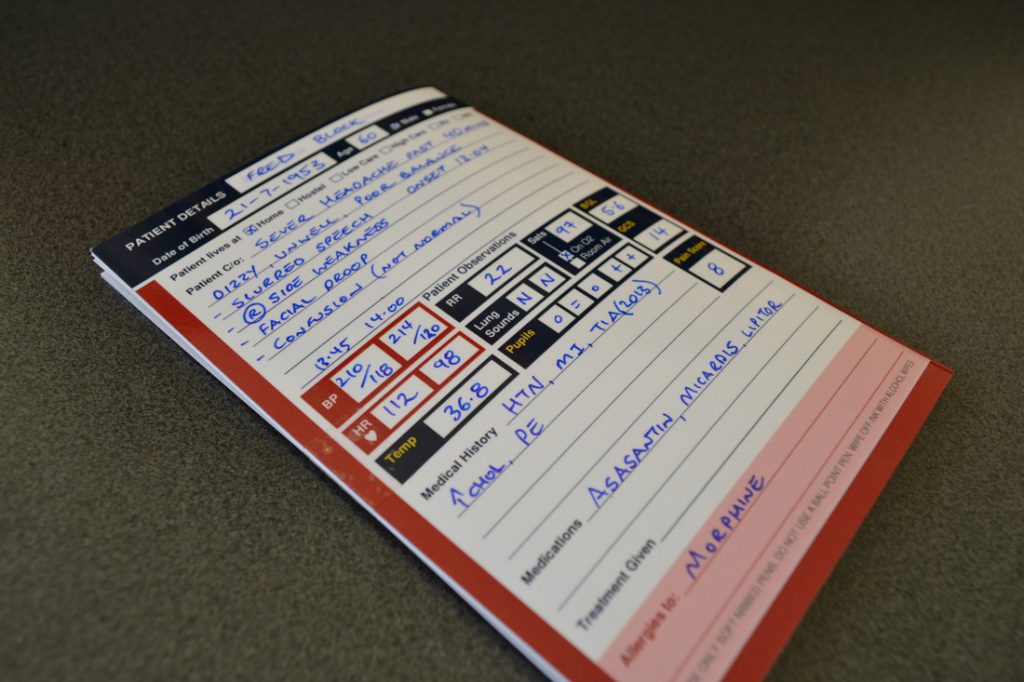 PATIENT DETAILS FRED BLOCK
Date of Birth 21-7-1953 Age 60 Male Female
Patient lives at Home Hostel Low Care High Care
Patient C/o: SEVER HEADACHE PAST 40 MINS
DIZZY UNWELL, POOR BALANCE
- SLURRED SPEECH ONSET 13.04
- (R) SIDE WEAKNESS
FACIAL DROOP
- CONFUSION (NOT NORMAL)
13.45 14.00 Patient Observations
BP 210/118 214/120 RR 22 Sats 97 BGL 5.6
HR 112 98 Lung Sounds N N On O2 Room Air GCS 14
Temp 36.8 Pupils 0 = 0 + + Pain Score 8
Medical History HTN, MI, TIA (2013)
↑ CHOL, PE
Medications ASASANTIN, MICARDIS LIPITOR
Treatment Given
Allergies to: MORPHINE
USE ONLY SOFT NIBBED PENS. DO NOT USE A BALL POINT PEN. WIPE OFF INK WITH ALCOHOL WIPES